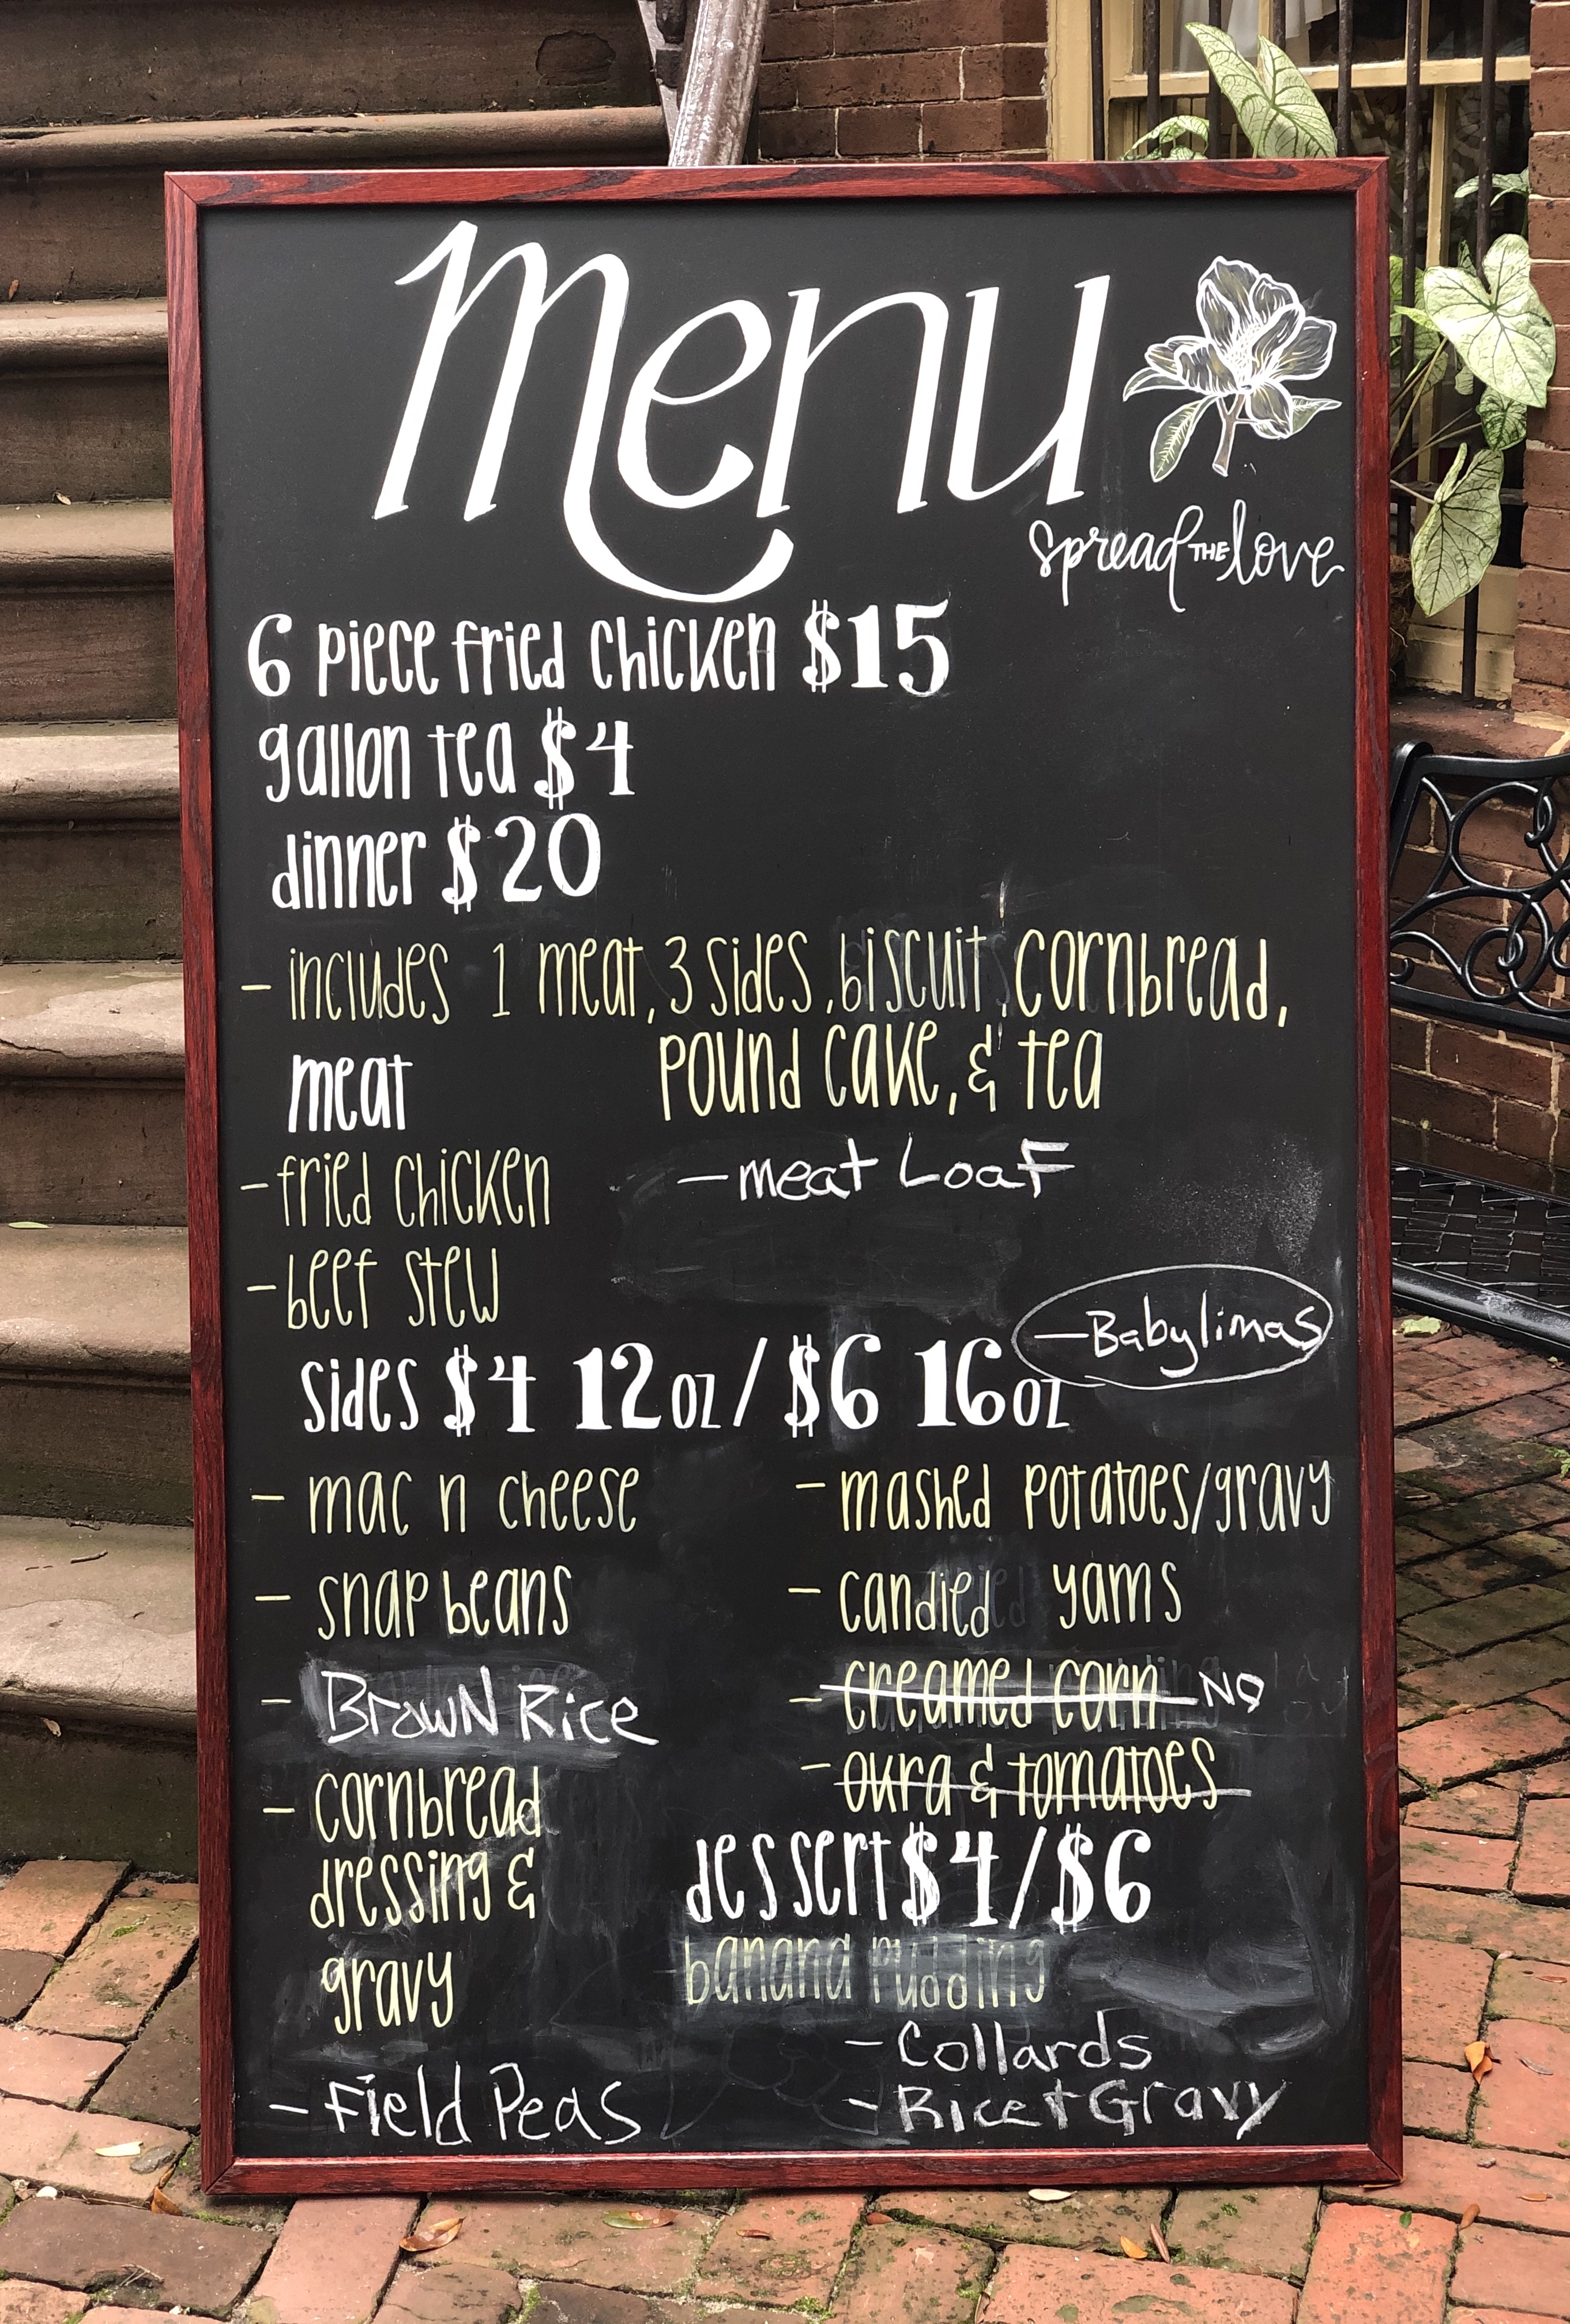 Menu
spread THE love
6 piece fried chicken $15
gallon tea $4
dinner $20
- includes 1 meat, 3 sides, biscuit, cornbread,
pound cake, & tea
meat
- fried chicken
- meat Loaf
- beef stew
- Babylimas
sides $4 12oz / $6 16oz
- mac n cheese
- mashed potatoes/gravy
- snap beans
- candied yams
- Brown Rice
- creamed corn NO
- okra & tomatoes
- cornbread
dressing &
gravy
dessert $4/$6
banana pudding
- Collards
- Rice + Gravy
- Field Peas